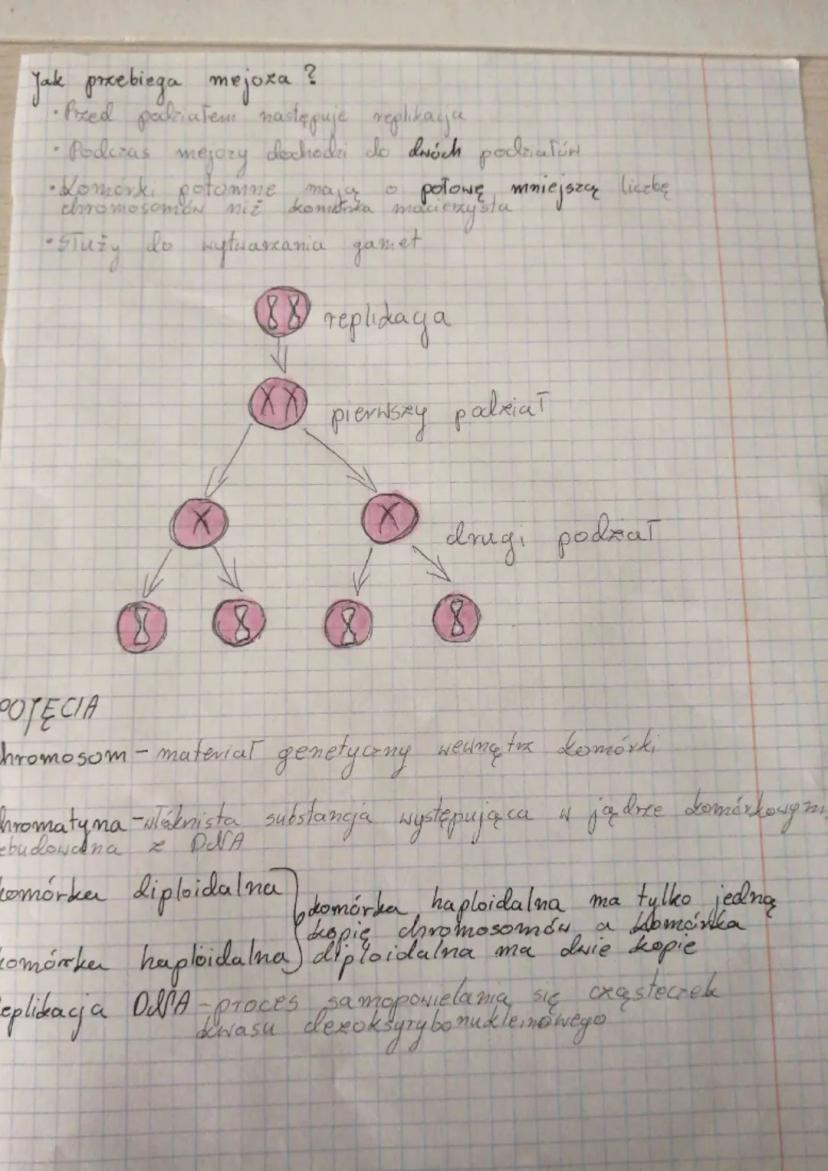 Jak przebiega mejoza?
• Przed podziałem następuje replikacja
• Podczas mejozy dochodzi do dwóch podziałów
• Komórki potomne mają o połowę mniejszą liczbę
chromosomów niż komórka macierzysta
• Służy do wytwarzania gamet
replikacja
pierwszy podział
drugi podział
POJĘCIA
hromosom - materiał genetyczny wewnątrz komórki
hromatyna - włóknista substancja występująca w jądrze komórkowym
zbudowana z DNA
komórka diploidalna
komórka haploidalna ma tylko jedną
kopię chromosomów a komórka
komórka haploidalna
diploidalna ma dwie kopie
eplikacja DNA - proces samopowielania się cząsteczek
kwasu dezoksyrybonukleinowego